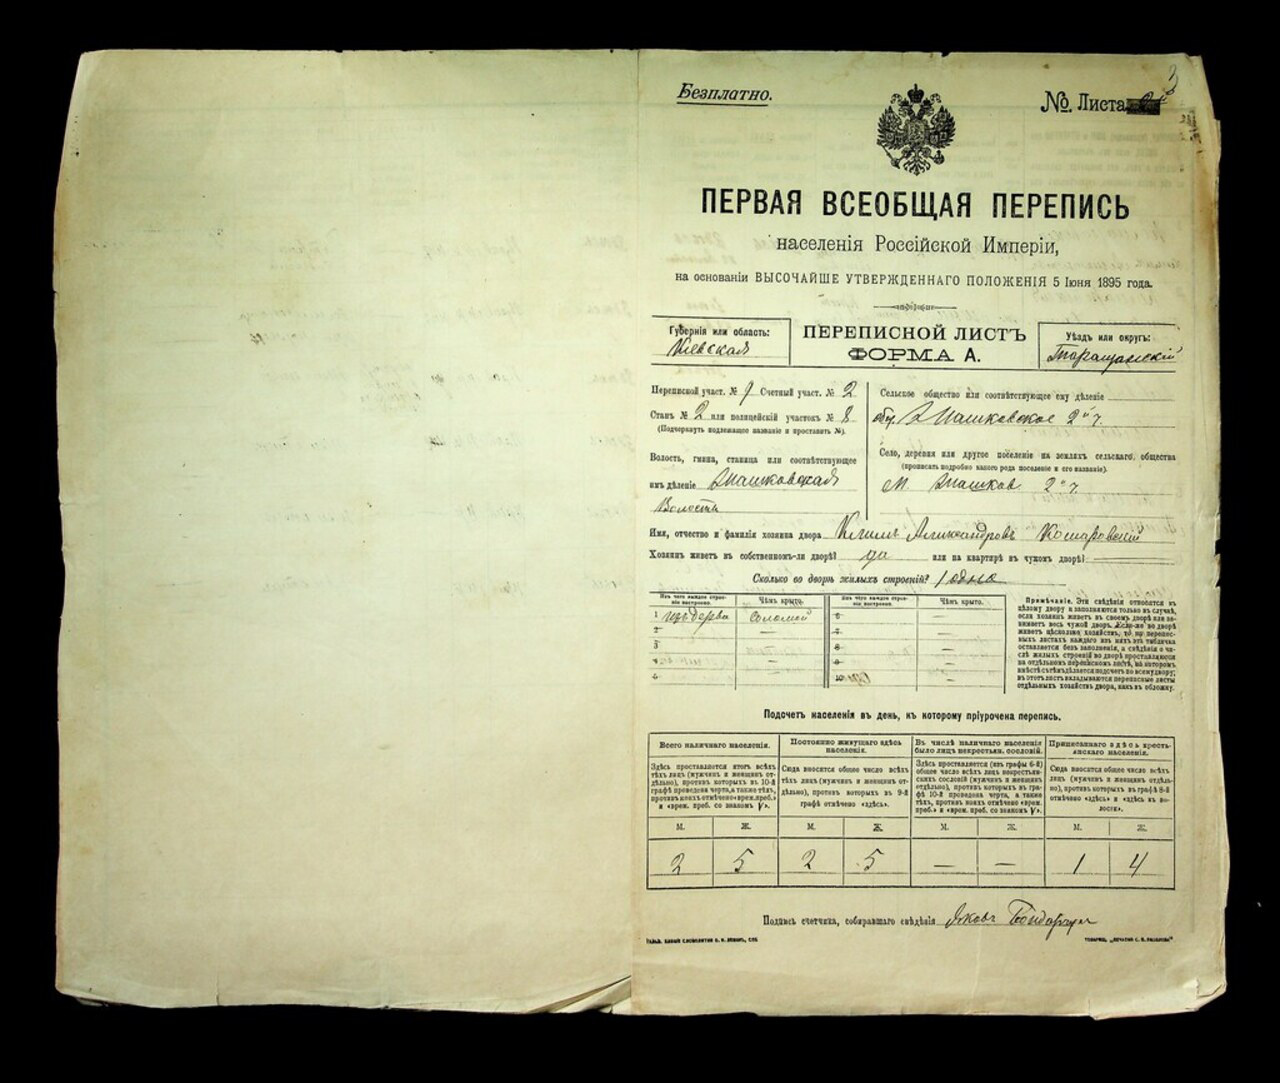 Безплатно.
№. Листа
3
ПЕРВАЯ ВСЕОБЩАЯ ПЕРЕПИСЬ
населенія Россійской Имперіи,
на основаніи ВЫСОЧАЙШЕ УТВЕРЖДЕННАГО ПОЛОЖЕНІЯ 5 Іюня 1895 года.
Губернія или область:
Кіевская
ПЕРЕПИСНОЙ ЛИСТЪ
ФОРМА А.
Уѣздъ или округъ:
Таращанскій
Переписной участ. № 9 Счетный участ. № 2
Станъ № 2 или полицейскій участокъ № 8
(Подчеркнуть надлежащее названіе и проставить №).
Волость, гмина, станица или соотвѣтствующее
имъ дѣленіе
Волость
Сельское общество или соотвѣтствующее ему дѣленіе
2й ч.
Село, деревня или другое поселеніе на земляхъ сельскаго общества
(прописать подробно какого рода поселеніе и его названіе).
м. 2й ч
Имя, отчество и фамилія хозяина двора Александровъ Комаровскій
Хозяинъ живетъ въ собственномъ-ли дворѣ? да или на квартирѣ въ чужомъ дворѣ?
Сколько во дворѣ жилыхъ строеній? 1 одно
Изъ чего каждое строе-
ніе построено.
Чѣмъ крыто.
Изъ чего каждое строе-
ніе построено.
Чѣмъ крыто.
1 изъ дерва соломой 6 —
2 — 7 —
3 — 8 —
4 — 9 —
5 10 —
Примѣчаніе. Эти свѣдѣнія относятся къ
цѣлому двору и заполняются только въ случаѣ,
если хозяинъ живетъ въ своемъ дворѣ или за-
нимаетъ весь чужой дворъ. Если-же во дворѣ
живетъ нѣсколько хозяйствъ, то на перепис-
ныхъ листахъ каждаго изъ нихъ эта табличка
оставляется безъ заполненія, а свѣдѣнія о чи-
слѣ жилыхъ строеній во дворѣ проставляются
на отдѣльномъ переписномъ листѣ, на которомъ
вмѣстѣ съ тѣмъ дѣлается подсчетъ по всему двору;
въ этотъ листъ вкладываются переписные листы
отдѣльныхъ хозяйствъ двора, какъ въ обложку.
Подсчетъ населенія въ день, къ которому пріурочена перепись.
Всего наличнаго населенія.
Здѣсь проставляется итогъ всѣхъ
тѣхъ лицъ (мужчинъ и женщинъ от-
дѣльно), противъ которыхъ въ 10-й
графѣ проведена черта, а также тѣхъ,
противъ коихъ отмѣчено «врем. преб.»
и «врем. преб. со знакомъ V».
Постоянно живущаго здѣсь
населенія.
Сюда вносится общее число всѣхъ
тѣхъ лицъ (мужчинъ и женщинъ от-
дѣльно), противъ которыхъ въ 9-й
графѣ отмѣчено «здѣсь».
Въ числѣ наличнаго населенія
было лицъ некрестьян. сословій.
Здѣсь проставляется (изъ графы 6-й)
общее число всѣхъ лицъ некрестьян-
скихъ сословій (мужчинъ и женщинъ
отдѣльно), противъ которыхъ въ гра-
фѣ 10-й проведена черта, а также
тѣхъ, противъ коихъ отмѣчено «врем.
преб.» и «врем. преб. со знакомъ V».
Приписаннаго здѣсь кресть-
янскаго населенія.
Сюда вносится общее число всѣхъ
тѣхъ лицъ (мужчинъ и женщинъ отдѣль-
но), противъ которыхъ въ графѣ 8-й
отмѣчено «здѣсь» и «здѣсь въ во-
лости».
М. Ж. М. Ж. М. Ж. М. Ж.
2 5 2 5 — — 1 4
Подпись счетчика, собиравшаго свѣдѣнія Яковъ